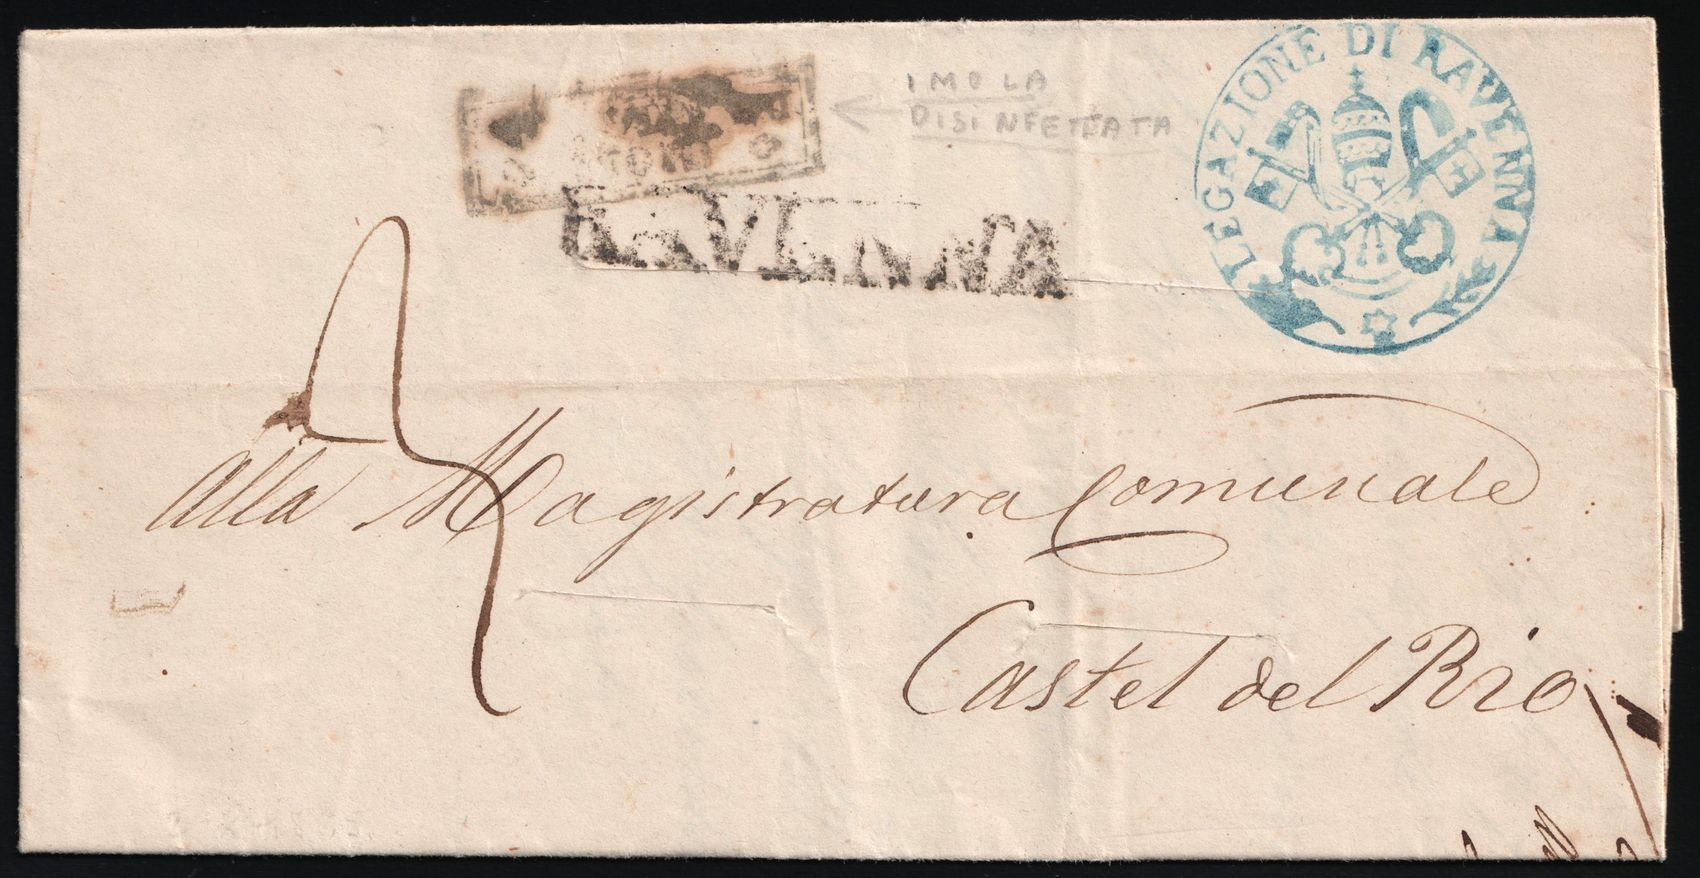 IMOLA
DISINFETTATA
LEGAZIONE DI RAVENNA
RAVENNA
Alla Magistratura Comunale
Castel del Rio